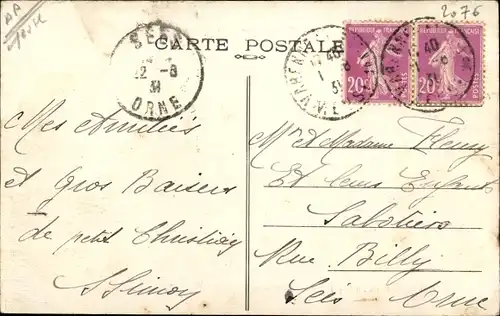 2076
CARTE POSTALE
SEES
22-8
31
ORNE
40
1
31
40
1
31
REPUBLIQUE FRANÇAISE
20c
REPUBLIQUE FRANÇAISE
20c
Mes Amitiés
et Gros Baisers
de petit Christian
S Simon
Mr et Madame Fleury
Et leurs Enfants
Sabotiers
Rue Billy
Sées Orne